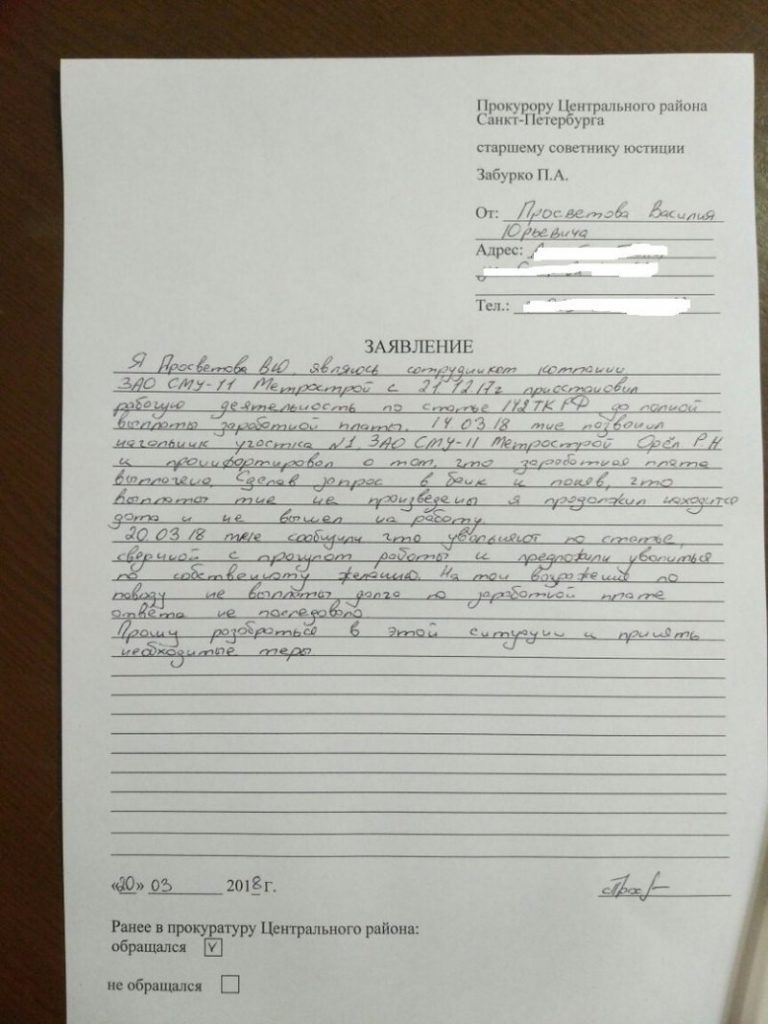 Прокурору Центрального района
Санкт-Петербурга
старшему советнику юстиции
Забурко П.А.
От: Просветова Василия
Юрьевича
Адрес:
Тел.:
ЗАЯВЛЕНИЕ
Я Просветова ВЮ, являюсь сотрудником компании
ЗАО СМУ-11 Метрострой с 21.12.17г приостановил
рабочую деятельность по статье 142 ТК РФ до полной
выплаты заработной платы. 14.03.18 мне позвонил
начальник участка №1 ЗАО СМУ-11 Метрострой Орёл Р.Н
и проинфортировал о том, что заработная плата
выплачена. Сделав запрос в банк и поняв, что
выплаты мне не произведены я продолжил находится
дома и не вышел на работу.
20.03.18 мне сообщили что увольняют по статье,
с прогулом работы и предложили уволиться
по собственному желанию. На мои возражения по
поводу не выплаты долга по заработной плате
ответа не последовало.
Прошу разобраться в этой ситуации и принять
необходимые меры
«20» 03 2018 г.
Ранее в прокуратуру Центрального района:
обращался V
не обращался